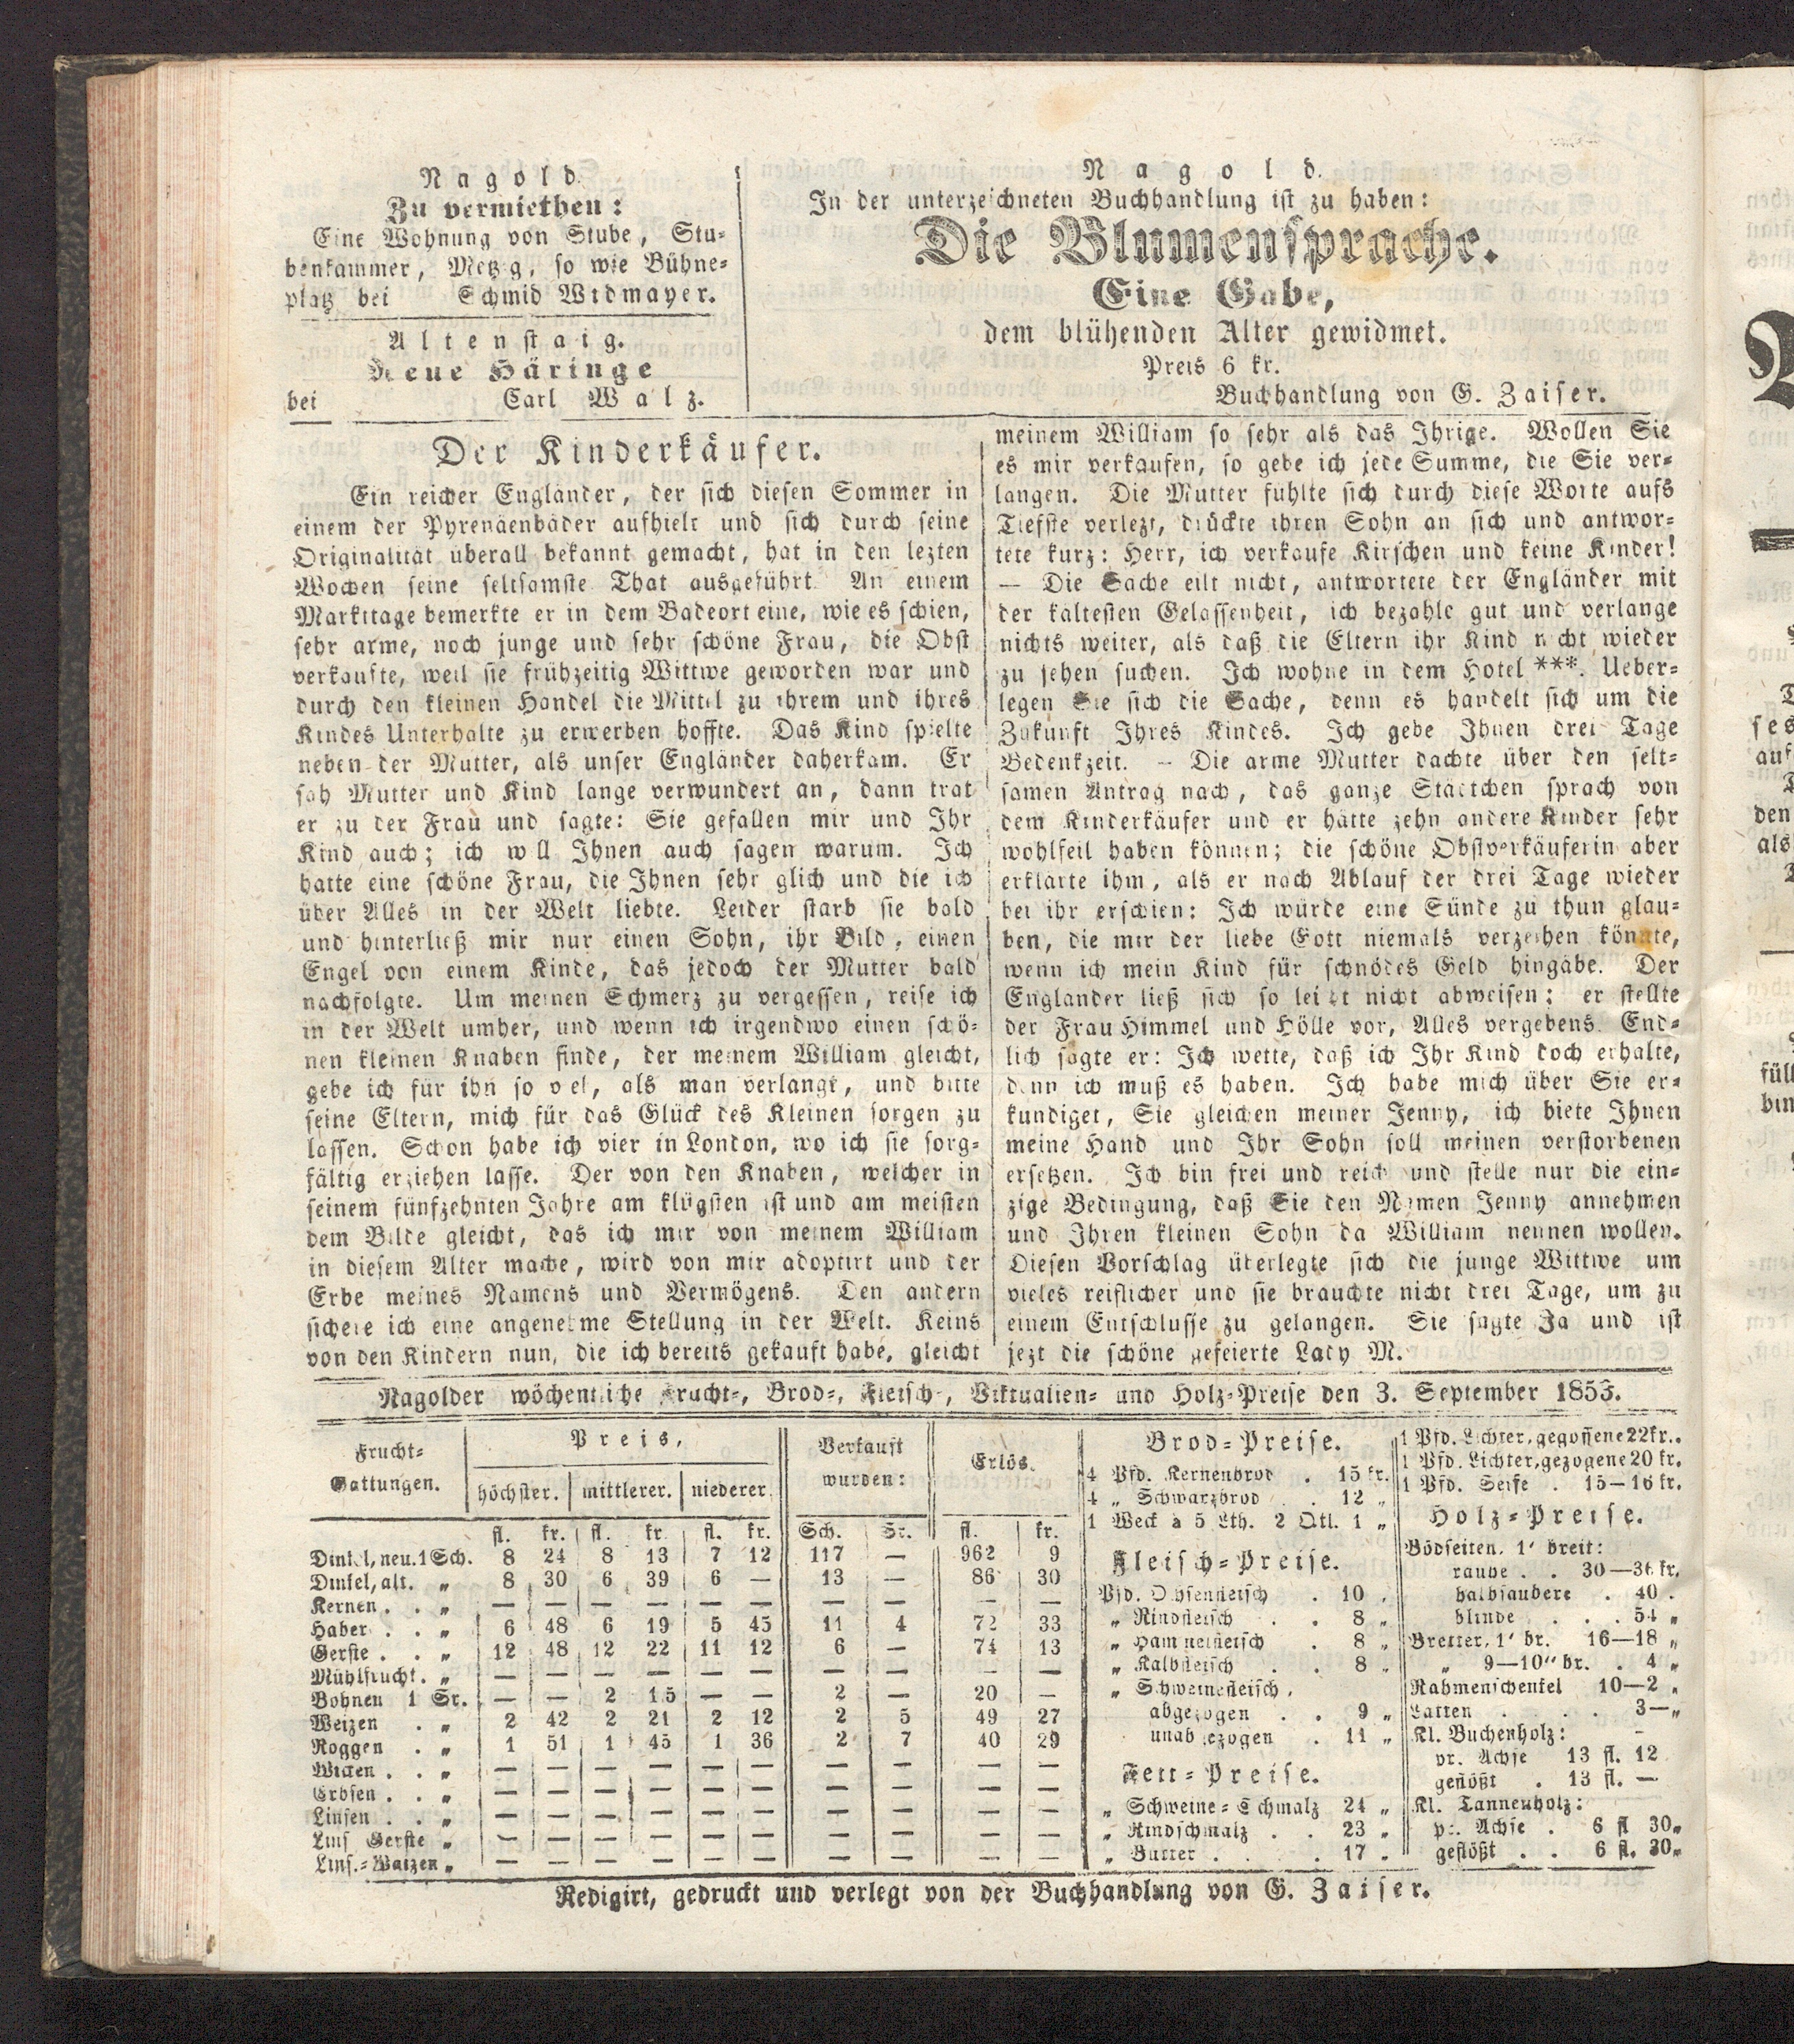 Nagold.
Zu vermiethen:
Eine Wohnung von Stube, Stu-
benkammer, Metzig, so wie Bühne-
platz bei Schmid Widmayer.
Altenstaig.
Neue Häringe
bei Carl Walz.
Nagold.
In der unterzeichneten Buchhandlung ist zu haben:
Die Blumensprache.
Eine Gabe,
dem blühenden Alter gewidmet.
Preis 6 kr.
Buchhandlung von G. Zaiser.
Der Kinderkäufer.
Ein reicher Engländer, der sich diesen Sommer in
einem der Pyrenäenbäder aufhielt und sich durch seine
Originalität überall bekannt gemacht, hat in den lezten
Wochen seine seltsamste That ausgeführt. An einem
Markttage bemerkte er in dem Badeort eine, wie es schien,
sehr arme, noch junge und sehr schöne Frau, die Obst
verkaufte, weil sie frühzeitig Wittwe geworden war und
durch den kleinen Handel die Mittel zu ihrem und ihres
Kindes Unterhalte zu erwerben hoffte. Das Kind spielte
neben der Mutter, als unser Engländer daherkam. Er
sah Mutter und Kind lange verwundert an, dann trat
er zu der Frau und sagte: Sie gefallen mir und Ihr
Kind auch; ich will Ihnen auch sagen warum. Ich
hatte eine schöne Frau, die Ihnen sehr glich und die ich
über Alles in der Welt liebte. Leider starb sie bald
und hinterließ mir nur einen Sohn, ihr Bild, einen
Engel von einem Kinde, das jedoch der Mutter bald
nachfolgte. Um meinen Schmerz zu vergessen, reise ich
in der Welt umher, und wenn ich irgendwo einen schö-
nen kleinen Knaben finde, der meinem William gleicht,
gebe ich für ihn so viel, als man verlangt, und bitte
seine Eltern, mich für das Glück des Kleinen sorgen zu
lassen. Schon habe ich vier in London, wo ich sie sorg-
fältig erziehen lasse. Der von den Knaben, welcher in
seinem fünfzehnten Jahre am klügsten ist und am meisten
dem Bilde gleicht, das ich mir von meinem William
in diesem Alter mache, wird von mir adoptirt und der
Erbe meines Namens und Vermögens. Den andern
sichere ich eine angenehme Stellung in der Welt. Keins
von den Kindern nun, die ich bereits gekauft habe, gleicht
meinem William so sehr als das Ihrige. Wollen Sie
es mir verkaufen, so gebe ich jede Summe, die Sie ver-
langen. Die Mutter fühlte sich durch diese Worte aufs
Tiefste verlezt, drückte ihren Sohn an sich und antwor-
tete kurz: Herr, ich verkaufe Kirschen und keine Kinder!
— Die Sache eilt nicht, antwortete der Engländer mit
der kältesten Gelassenheit, ich bezahle gut und verlange
nichts weiter, als daß die Eltern ihr Kind nicht wieder
zu sehen suchen. Ich wohne in dem Hotel ***. Ueber-
legen Sie sich die Sache, denn es handelt sich um die
Zukunft Ihres Kindes. Ich gebe Ihnen drei Tage
Bedenkzeit. — Die arme Mutter dachte über den selt-
samen Antrag nach, das ganze Städtchen sprach von
dem Kinderkäufer und er hätte zehn andere Kinder sehr
wohlfeil haben können; die schöne Obstverkäuferin aber
erklärte ihm, als er nach Ablauf der drei Tage wieder
bei ihr erschien: Ich würde eine Sünde zu thun glau-
ben, die mir der liebe Gott niemals verzeihen könnte,
wenn ich mein Kind für schnödes Geld hingäbe. Der
Engländer ließ sich so leicht nicht abweisen; er stellte
der Frau Himmel und Hölle vor, Alles vergebens. End-
lich sagte er: Ich wette, daß ich Ihr Kind doch erhalte,
denn ich muß es haben. Ich habe mich über Sie er-
kundiget, Sie gleichen meiner Jenny, ich biete Ihnen
meine Hand und Ihr Sohn soll meinen verstorbenen
ersetzen. Ich bin frei und reich und stelle nur die ein-
zige Bedingung, daß Sie den Namen Jenny annehmen
und Ihren kleinen Sohn da William nennen wollen.
Diesen Vorschlag überlegte sich die junge Wittwe um
vieles reiflicher und sie brauchte nicht drei Tage, um zu
einem Entschlusse zu gelangen. Sie sagte Ja und ist
jezt die schöne gefeierte Lady M.
Nagolder wöchentliche Frucht-, Brod-, Fleisch-, Viktualien- und Holz-Preise den 3. September 1853.
Frucht-Gattungen. Preis, Verkauft wurden: Erlös.
höchster. mittlerer. niederer.
fl. kr. fl. kr. fl. kr. Sch. Sr. fl. kr.
Dinkel, neu. 1 Sch. 8 24 8 13 7 12 117 — 962 9
Dinkel, alt. „ 8 30 6 39 6 — 13 — 86 30
Kernen . . „ — — — — — — — — — —
Haber . . „ 6 48 6 19 5 45 11 4 72 33
Gerste . . „ 12 48 12 22 11 12 6 — 74 13
Mühlfrucht. „ — — — — — — — — — —
Bohnen 1 Sr. — — 2 15 — — 2 — 20 —
Weizen . „ 2 42 2 21 2 12 2 5 49 27
Roggen . „ 1 51 1 45 1 36 2 7 40 29
Wicken . . „ — — — — — — — — — —
Erbsen . . „ — — — — — — — — — —
Linsen . . „ — — — — — — — — — —
Lins Gerste „ — — — — — — — — — —
Lins.-Waizen „ — — — — — — — — — —
Brod-Preise.
4 Pfd. Kernenbrod . 15 kr.
4 „ Schwarzbrod . . 12 „
1 Weck à 5 Lth. 2 Qtl. 1 „
Fleisch-Preise.
Pfd. Ochsenfleisch . 10 „
„ Rindfleisch . . 8 „
„ Hammelfleisch . 8 „
„ Kalbfleisch . . 8 „
„ Schweinefleisch,
abgezogen . . 9 „
unabgezogen . 11 „
Fett-Preise.
„ Schweine-Schmalz 24 „
„ Rindschmalz . . 23 „
„ Butter . . . 17 „
1 Pfd. Lichter, gegossene 22 kr.
1 Pfd. Lichter, gezogene 20 kr.
1 Pfd. Seife . 15—16 kr.
Holz-Preise.
Bödseiten. 1' breit:
rauhe . . 30—36 kr.
halbsaubere . 40 .
blinde . . . 54 „
Bretter, 1' br. 16—18 „
„ 9—10" br. . 4 „
Rahmenschenkel 10—2 „
Latten . . . 3— „
Kl. Buchenholz:
pr. Achse 13 fl. 12
geflößt . 13 fl. —
Kl. Tannenholz:
pr. Achse . 6 fl 30 „
geflößt . . 6 fl. 30 „
Redigirt, gedruckt und verlegt von der Buchhandlung von G. Zaiser.